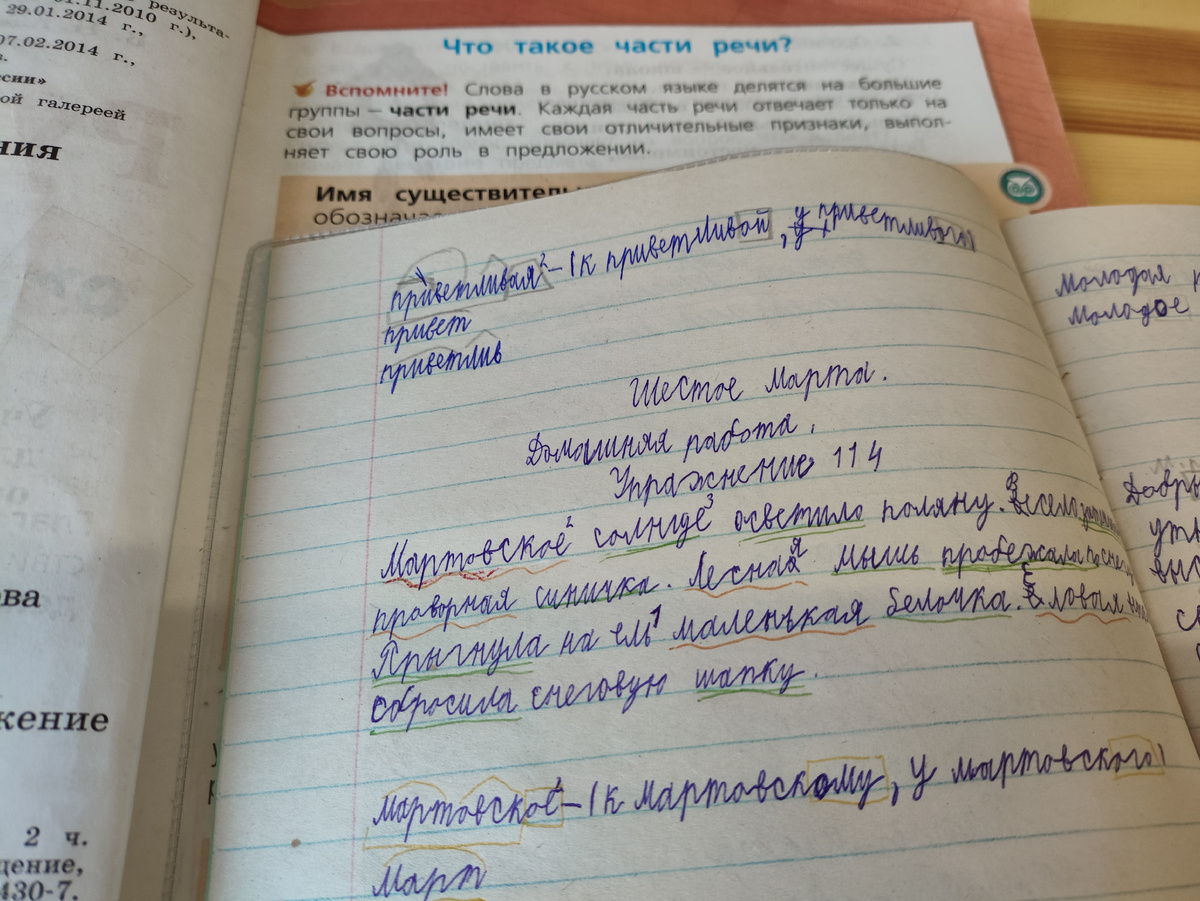 01.11.2010 г.), результа-
29.01.2014 г.,
07.02.2014 г.,
ой галереей
Что такое части речи?
Вспомните! Слова в русском языке делятся на большие
группы – части речи. Каждая часть речи отвечает только на
свои вопросы, имеет свои отличительные признаки, выпол-
няет свою роль в предложении.
Имя
обознача
приветливая² – (к приветливой, у приветливого)
привет
приветлив
Шестое марта.
Домашняя работа.
Упражнение 114
Мартовское² солнце³ осветило поляну. Весело
проворная синичка. Лесная мышь пробежала по
Прыгнула на ель¹ маленькая белочка.
сбросила снеговую шапку.
мартовское² – (к мартовскому, у мартовского)
Март
молодая
молодое
2 ч.
430-7.